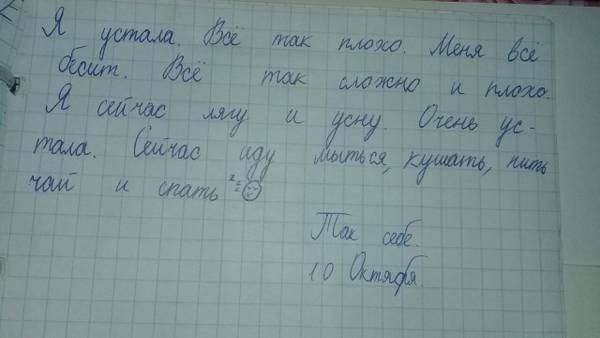 Я устала. Всё так плохо. Меня всё
бесит. Всё так сложно и плохо.
Я сейчас лягу и усну. Очень ус-
тала. Сейчас иду мыться, кушать, пить
чай и спать
Так себе.
10 Октября